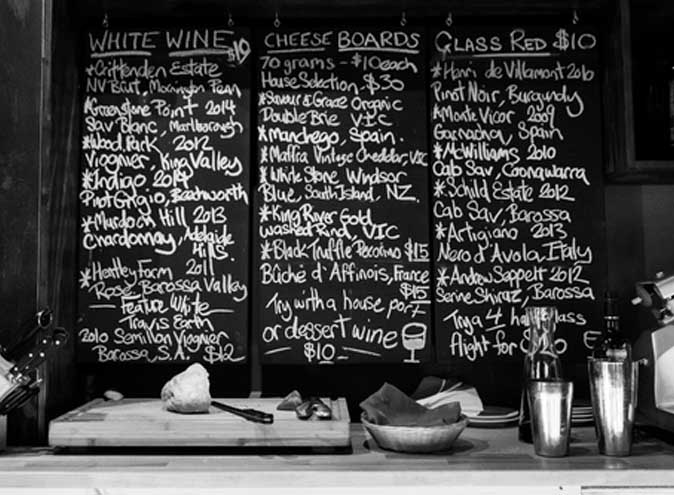 WHITE WINE $10
*Crittenden Estate
NV Brut, Mornington Pean
*Greenstone Point 2014
Sav Blanc, Marlborough
*Wood Park 2012
Viognier, King Valley
*Indigo 2014
Pinot Grigio, Beechworth
*Murdoch Hill 2013
Chardonnay, Adelaide
Hills.
*Hentley Farm 2011
Rose, Barossa Valley
Feature White
Travis Earth
2010 Semillon Viognier
Barossa S.A. $12
CHEESE BOARDS
70 grams - $10 each
House Selection - $30
*Savour & Grace Organic
Double Brie VIC
*Manchego, Spain.
*Maffra Vintage Cheddar, VIC
*White Stone Windsor
Blue, South Island, NZ.
*King River Gold
Washed Rind, VIC
*Black Truffle Pecorino $15
Bûché d'Affinois, France
$15
Try with a house port
or dessert wine
$10
GLASS RED $10
*Henri de Villamont 2010
Pinot Noir, Burgundy
*Monte Vicor 2009
Garnacha, Spain
*McWilliams 2010
Cab Sav, Coonawarra
*Schild Estate 2012
Cab Sav, Barossa
*Artigiano 2013
Nero d'Avola, Italy
*Andrew Seppelt 2012
Serine Shiraz, Barossa
Try a 4 glass
flight for